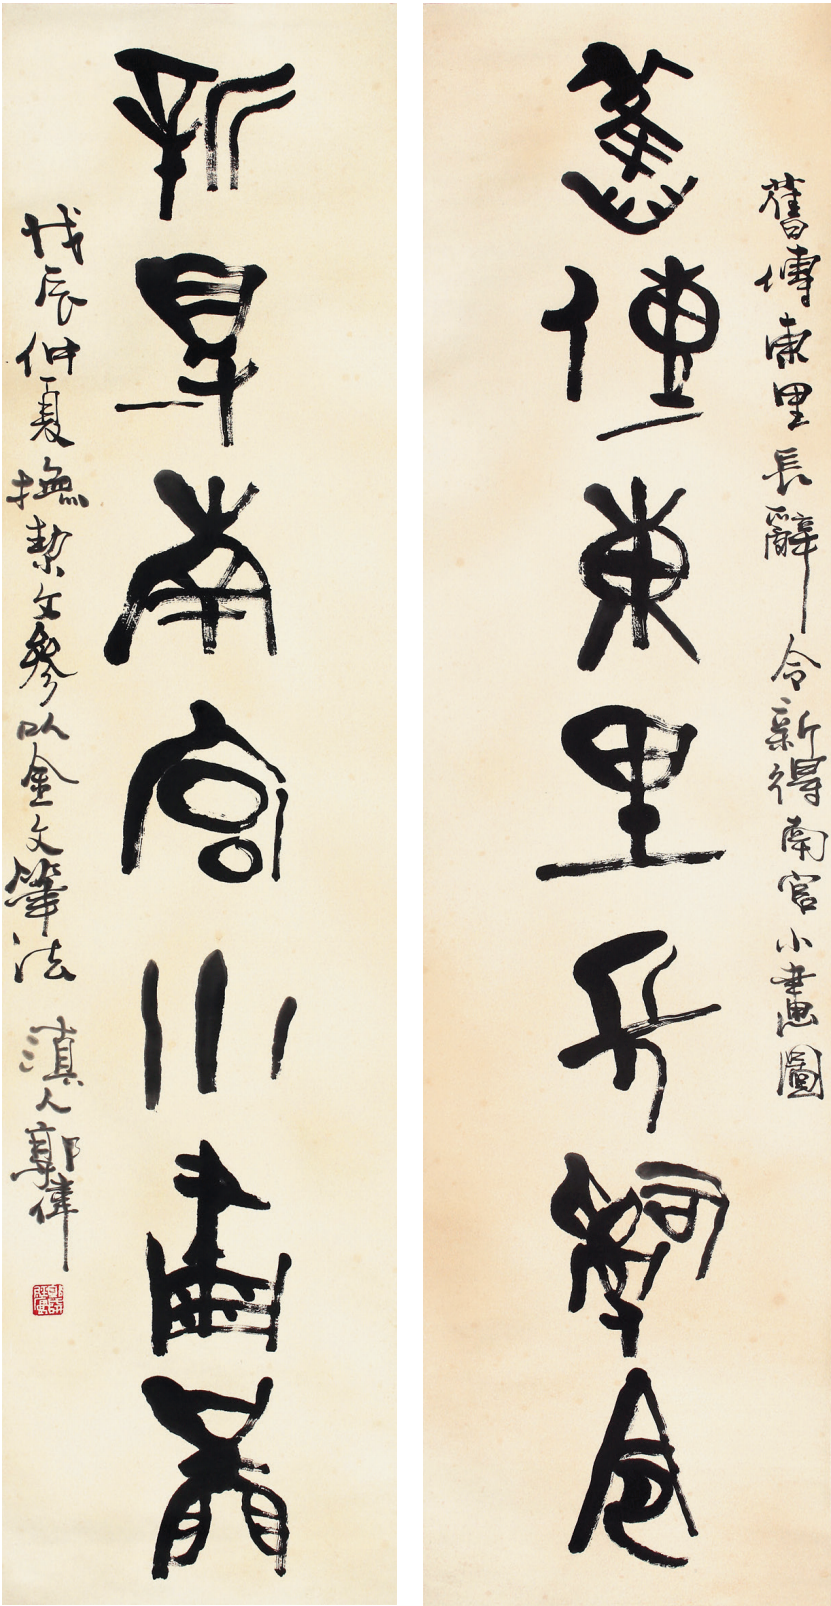 舊傳東里長辭令新得南宮小畫圖
舊傳東里長辭令
新得南宮小畫圖
戊辰仲夏撫栔文參以金文筆法 滇人郭偉